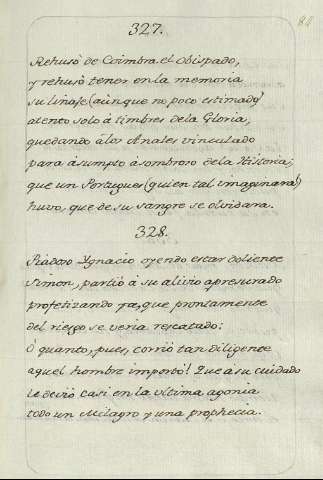 327.
Rehusò de Coimbra el Obispado,
y rehusò tener en la memoria
su linaje (aunque no poco estimado)
atento solo à timbres de la Gloria,
quedando à los Anales vinculado
para àsumpto àsombroso de la Historia;
que un Portugues (quien tal imaginara!)
huvo, que de su sangre se olvidara.
328.
Piadoso Ygnacio oyendo estar doliente
Simon, partiò à su alivio apresurado
profetizando ya, que prontamente
del riesgo se veria rescatado:
O quanto, pues, corriò tan diligente
aquel hombre importò! Que à su cuidado
le deviò casi en la ultima agonia
todo un Milagro y una prophecia.